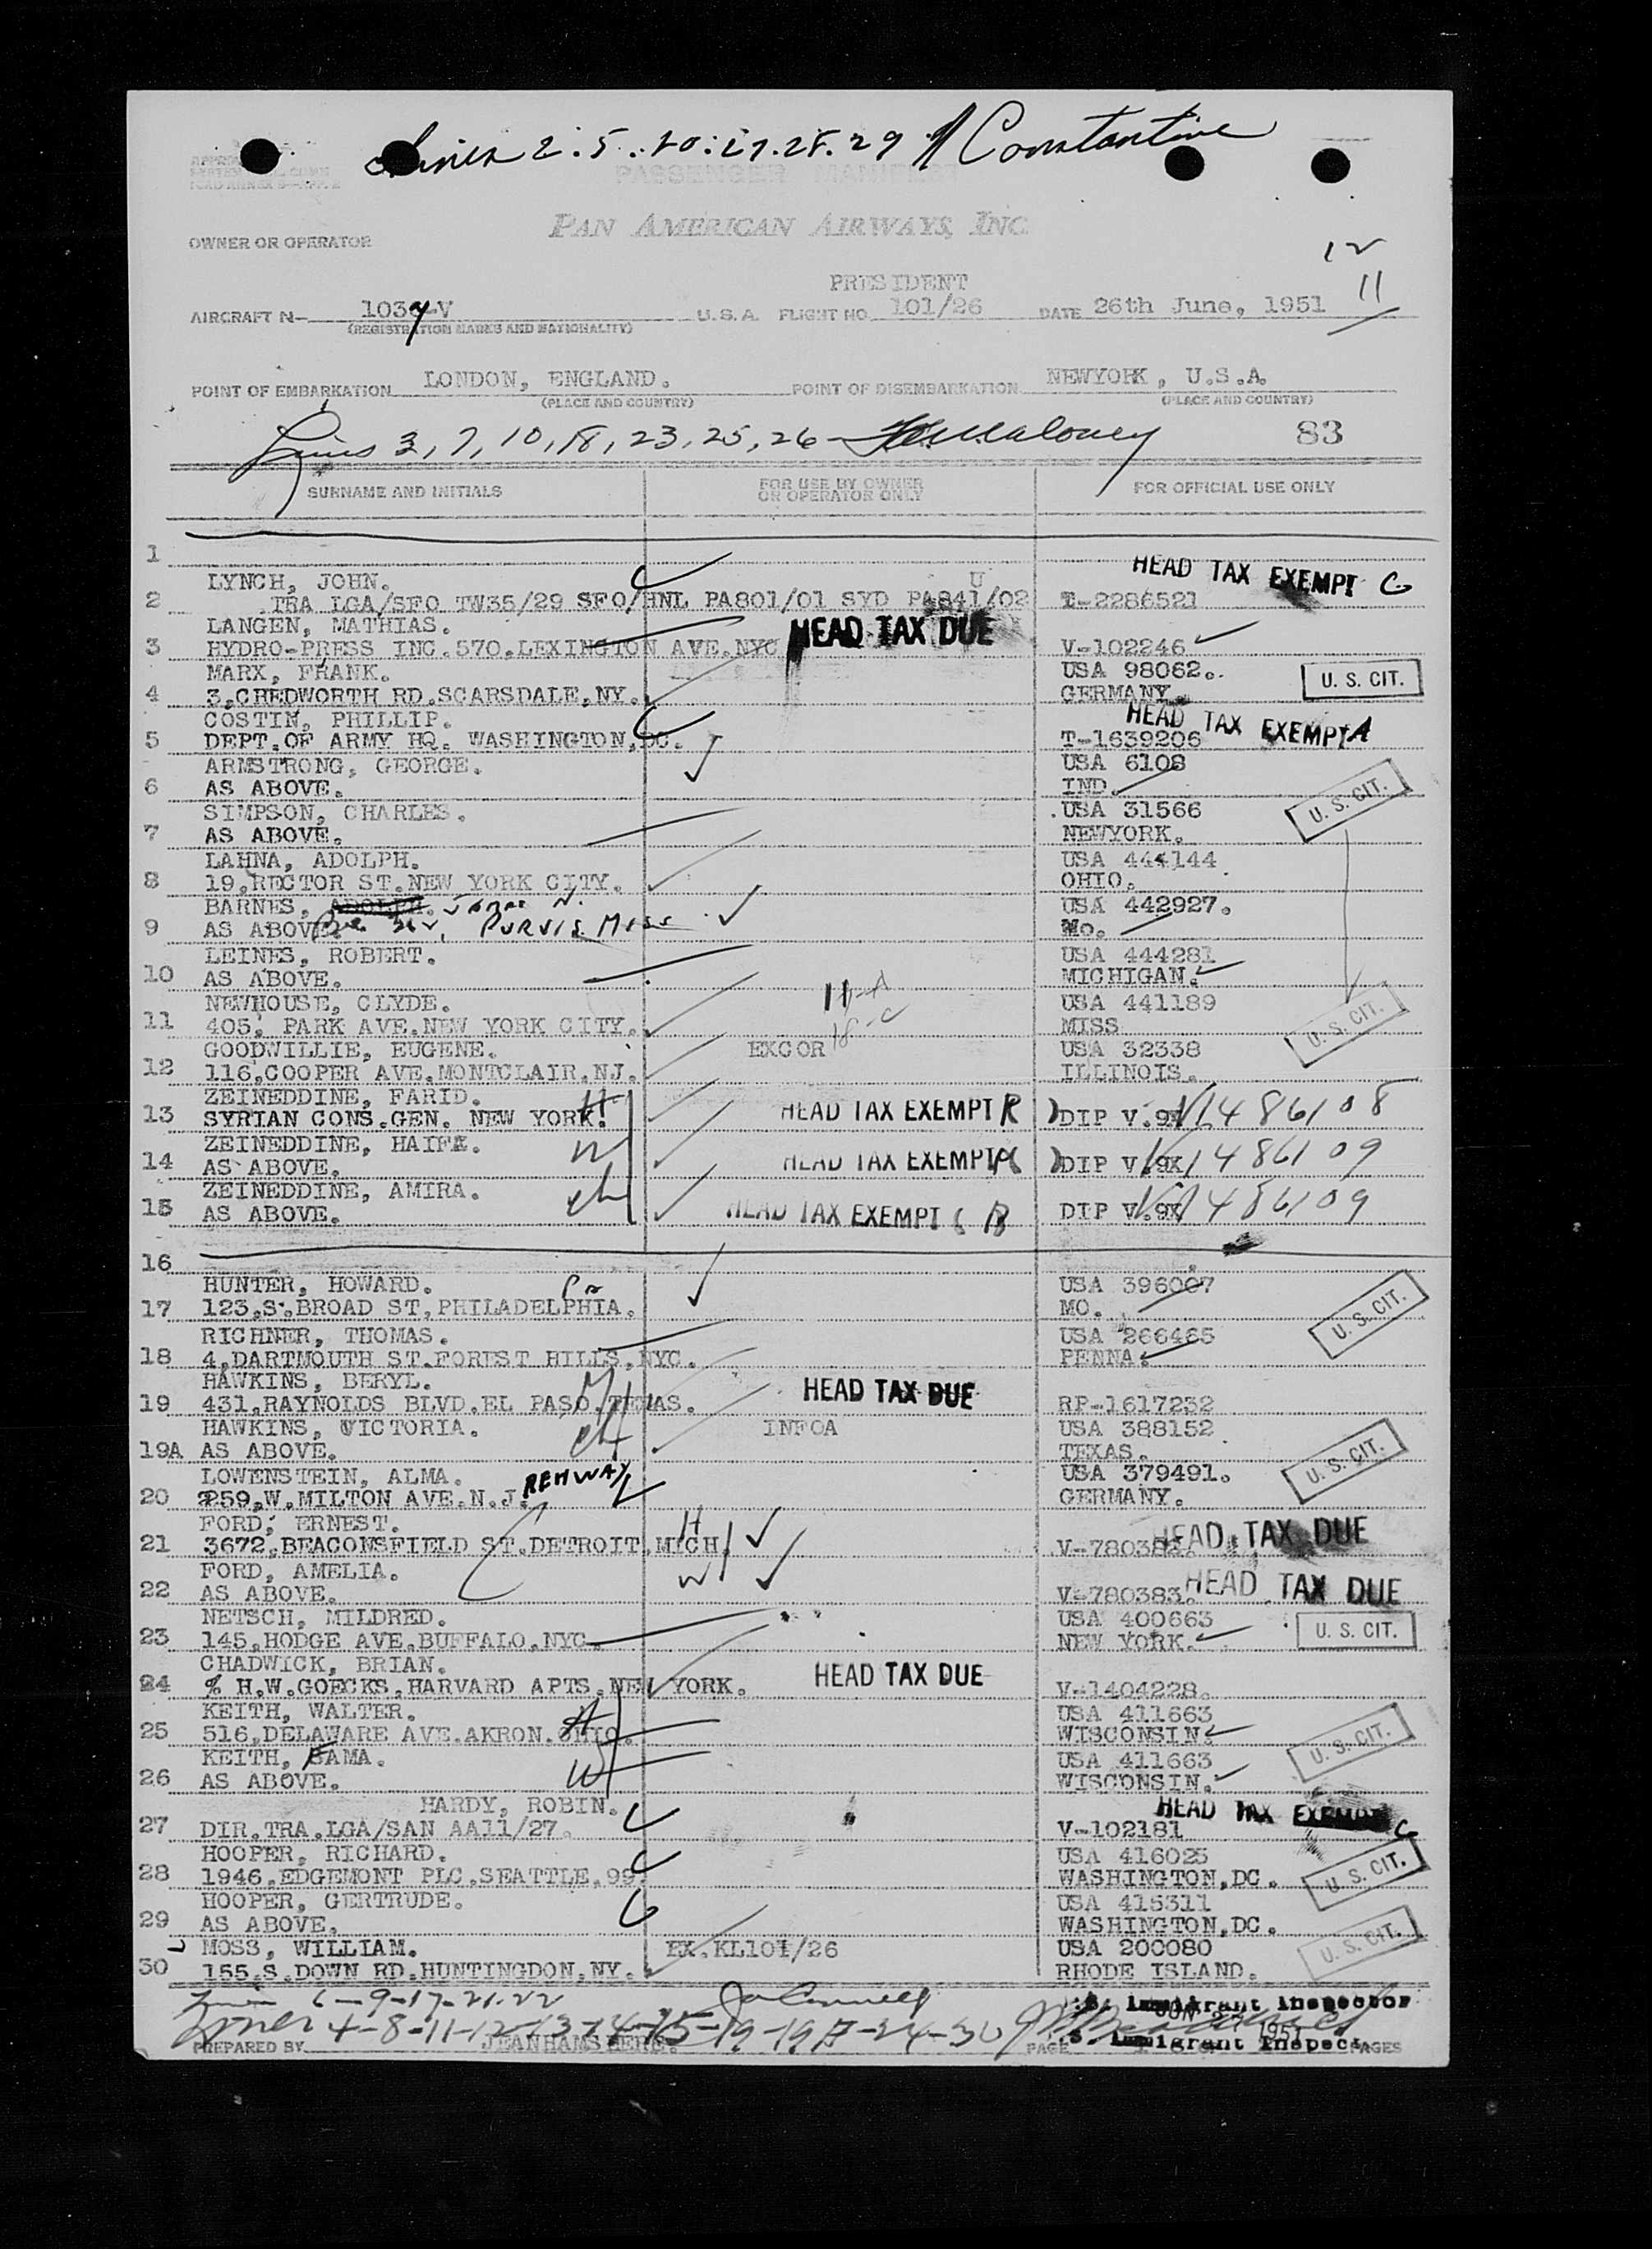 Lines 2.5.20.27.28.29 Constantine
PASSENGER MANIFEST
PAN AMERICAN AIRWAYS, INC
OWNER OR OPERATOR
12
11
PRESIDENT
AIRCRAFT N- 1034-V U.S.A. FLIGHT NO. 101/26 DATE 26th June, 1951
(REGISTRATION MARKS AND NATIONALITY)
POINT OF EMBARKATION LONDON, ENGLAND. POINT OF DISEMBARKATION NEWYORK, U.S.A.
(PLACE AND COUNTRY) (PLACE AND COUNTRY)
Lines 3, 7, 10, 18, 23, 25, 26 - Maloney 83
SURNAME AND INITIALS FOR USE BY OWNER OR OPERATOR ONLY FOR OFFICIAL USE ONLY
1
HEAD TAX EXEMPT C
LYNCH, JOHN. U
2 TRA LGA/SFO TW35/29 SFO/HNL PA801/01 SYD PA841/02 T-2286521
LANGEN, MATHIAS. HEAD TAX DUE
3 HYDRO-PRESS INC.570.LEXINGTON AVE.NYC V-102246
MARX, FRANK. USA 98062. U. S. CIT.
4 3,CHEDWORTH RD.SCARSDALE,NY. GERMANY.
COSTIN, PHILLIP. HEAD TAX EXEMPT A
5 DEPT.OF ARMY HQ. WASHINGTON,DC. T-1639206
ARMSTRONG, GEORGE. USA 6108
6 AS ABOVE. IND.
SIMPSON, CHARLES. USA 31566 U. S. CIT.
7 AS ABOVE. NEWYORK.
LAHNA, ADOLPH. USA 444144
8 19,RECTOR ST.NEW YORK CITY. OHIO.
BARNES, ADOLPH. James N. USA 442927.
9 AS ABOVE. PURVIS MISS Mo.
LEINES, ROBERT. USA 444281
10 AS ABOVE. MICHIGAN.
NEWHOUSE, CLYDE. 11-A USA 441189
11 405, PARK AVE.NEW YORK CITY. 18-C MISS U. S. CIT.
GOODWILLIE, EUGENE. EXCOR USA 32338
12 116,COOPER AVE.MONTCLAIR.NJ. ILLINOIS.
ZEINEDDINE, FARID. H
13 SYRIAN CONS.GEN. NEW YORK. HEAD TAX EXEMPT R DIP V.9X V1486108
ZEINEDDINE, HAIFA. W
14 AS ABOVE. HEAD TAX EXEMPT R DIP V.9X V1486109
ZEINEDDINE, AMIRA. ch
15 AS ABOVE. HEAD TAX EXEMPT R DIP V.9X V1486109
16
HUNTER, HOWARD. Pa USA 396007
17 123.S.BROAD ST,PHILADELPHIA. MO. U. S. CIT.
RICHNER, THOMAS. USA 266465
18 4,DARTMOUTH ST.FOREST HILLS,NYC. PENNA.
HAWKINS, BERYL. M HEAD TAX DUE
19 431,RAYNOLDS BLVD.EL PASO.TEXAS. RP-1617232
HAWKINS, VICTORIA. ch INFOA USA 388152
19A AS ABOVE. TEXAS. U. S. CIT.
LOWENSTEIN, ALMA. REHWAY USA 379491.
20 259,W.MILTON AVE.N.J. GERMANY.
FORD, ERNEST. H HEAD TAX DUE
21 3672,BEACONSFIELD ST.DETROIT.MICH V-780382.
FORD, AMELIA. W HEAD TAX DUE
22 AS ABOVE. V-780383.
NETSCH, MILDRED. USA 400663
23 145,HODGE AVE.BUFFALO.NYC NEW YORK. U. S. CIT.
CHADWICK, BRIAN. HEAD TAX DUE
24 % H.W.GOECKS.HARVARD APTS.NEW YORK. V-1404228.
KEITH, WALTER. H USA 411663
25 516,DELAWARE AVE.AKRON.OHIO. WISCONSIN. U. S. CIT.
KEITH, FAMA. W USA 411663
26 AS ABOVE. WISCONSIN.
HARDY, ROBIN. HEAD TAX EXEMPT C
27 DIR.TRA.LGA/SAN AA11/27. V-102181
HOOPER, RICHARD. USA 416025
28 1946.EDGEMONT PLC.SEATTLE.99. WASHINGTON,DC. U. S. CIT.
HOOPER, GERTRUDE. USA 415311
29 AS ABOVE. WASHINGTON,DC.
MOSS, WILLIAM. EX.KL101/26 USA 200080 U. S. CIT.
30 155.S.DOWN RD.HUNTINGDON.NY. RHODE ISLAND.
Lines 6-9-17-21-22
Lines 4-8-11-12-13-14-15-19-19A-24-30
U.S. Immigrant Inspector
JUN 1951
U.S. Immigrant Inspect
PREPARED BY JEANHAMSHERE. PAGE PAGES